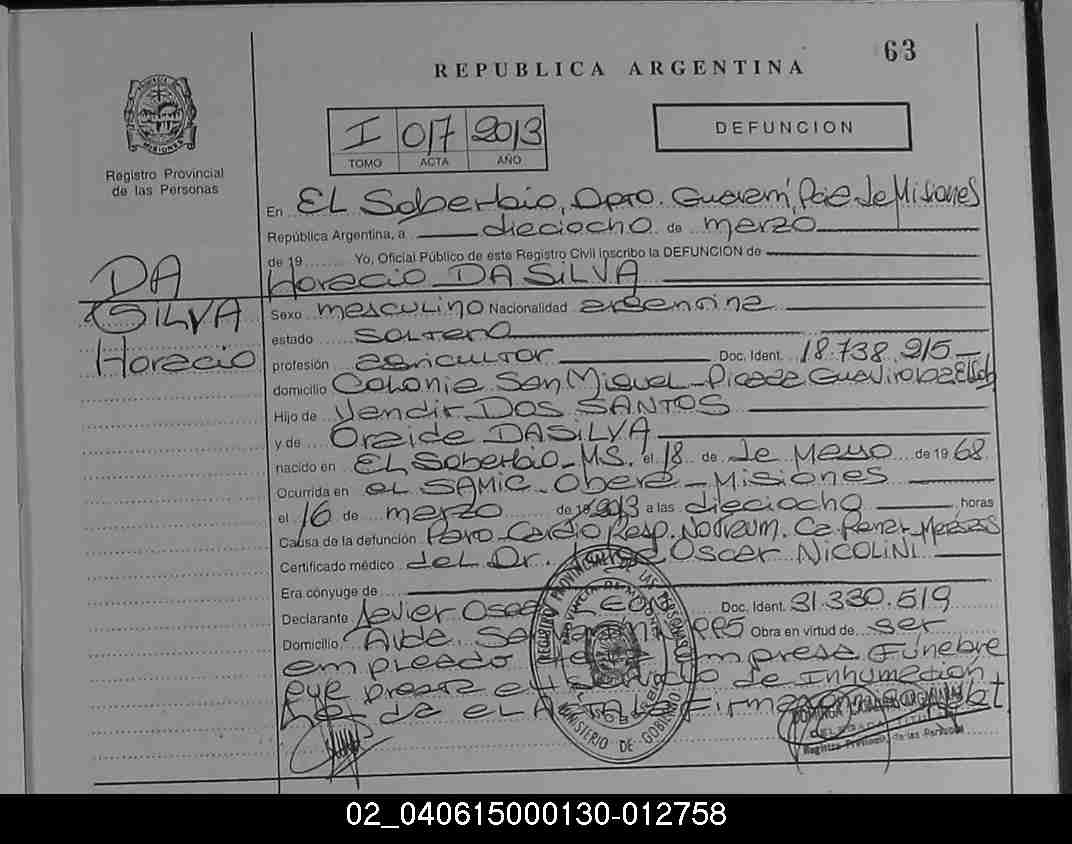 63
REPUBLICA ARGENTINA
PROVINCIA DE MISIONES
Registro Provincial
de las Personas
I 017 2013
TOMO ACTA AÑO
DEFUNCION
En EL Soberbio, Dpto. Guaraní, Pcia de Misiones
República Argentina, a dieciocho de marzo
de 19 Yo, Oficial Público de este Registro Civil inscribo la DEFUNCION de
Horacio DA SILVA
DA
SILVA
Horacio
Sexo masculino Nacionalidad argentina
estado soltero
profesión agricultor Doc. Ident. 18.738.915
domicilio Colonia San Miguel - Picada Guavirova El Sob
Hijo de Vendir DOS SANTOS
y de Oreide DA SILVA
nacido en EL Soberbio - MS. el 18 de de Mayo de 1968
Ocurrida en el SAMIC - Oberá - Misiones
el 16 de marzo de 2013 a las dieciocho horas
Causa de la defunción Paro Cardio Resp. Ca Renal
Certificado médico del Dr. Oscar NICOLINI
Era cónyuge de
Declarante Javier Oscar LEON Doc. Ident. 31.330.519
Domicilio Avda. San Martín Obra en virtud de ser
empleado de empresa Fúnebre
que presta el servicio de Inhumación
de el ACTA Firma
REGISTRO PROVINCIAL DE LAS PERSONAS
MINISTERIO DE GOBIERNO
Registro Provincial de las Personas
02_040615000130-012758